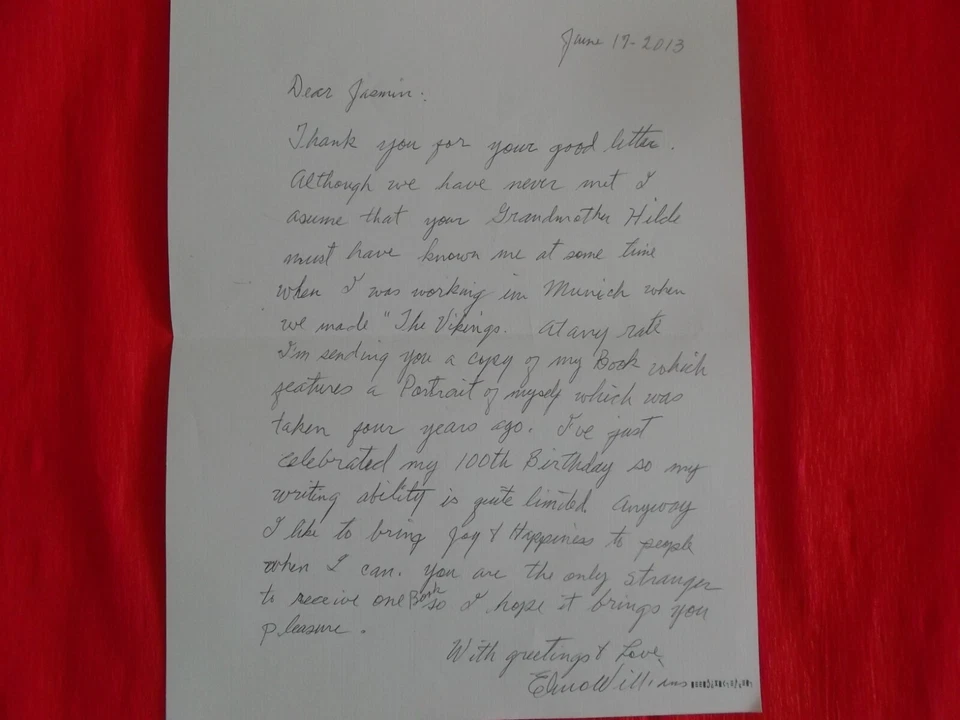 June 17-2013
Dear Jasmin:
Thank you for your good letter.
Although we have never met I
asume that your Grandmother Hilde
must have known me at some time
when I was working in Munich when
we made "The Vikings. At any rate
I'm sending you a copy of my Book which
features a Portrait of myself which was
taken four years ago. I've just
celebrated my 100th Birthday so my
writing ability is quite limited. Anyway
I like to bring Joy & Happiness to people
when I can. you are the only stranger
to receive one Book so I hope it brings you
pleasure.
With greetings & Love,
Elmo Williams